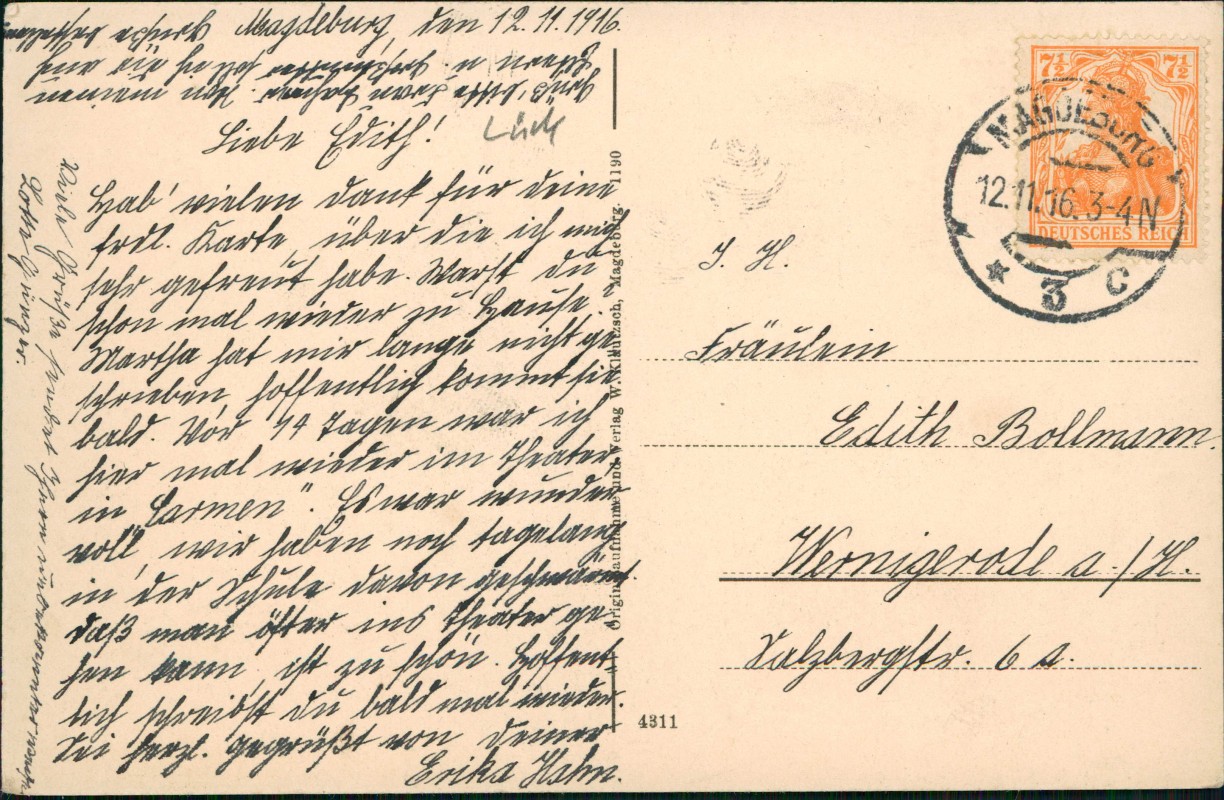 Magdeburg, den 12.11.1916.
Liebe Edith!
Hab' vielen Dank für deine
frdl. Karte, über die ich mich
sehr gefreut habe. Warst du
schon mal wieder zu Hause.
Martha hat mir lange nicht ge-
schrieben, hoffentlich kommt sie
bald. Vor 14 Tagen war ich
hier mal wieder im Theater
in „Carmen". Es war wunder
voll, wir haben noch tagelang
in der Schule davon geschwärmt.
daß man öfter ins Theater ge-
hen kann, ist zu schön. Hoffent-
lich schreibst du bald mal wieder.
Sei herzl. gegrüßt von deiner
Erika Hahn.
Viele Grüße sendet Ihnen unbekannter
Lotte
Original-Aufnahme und Verlag W. Klautzsch, Magdeburg. 1190
4311
7½ 7½
DEUTSCHES REICH
MAGDEBURG
12.11.16. 3-4N
* 3 C
I. H.
Fräulein
Edith Bollmann
Wernigerode a/H.
Salzbergstr. 6 a.